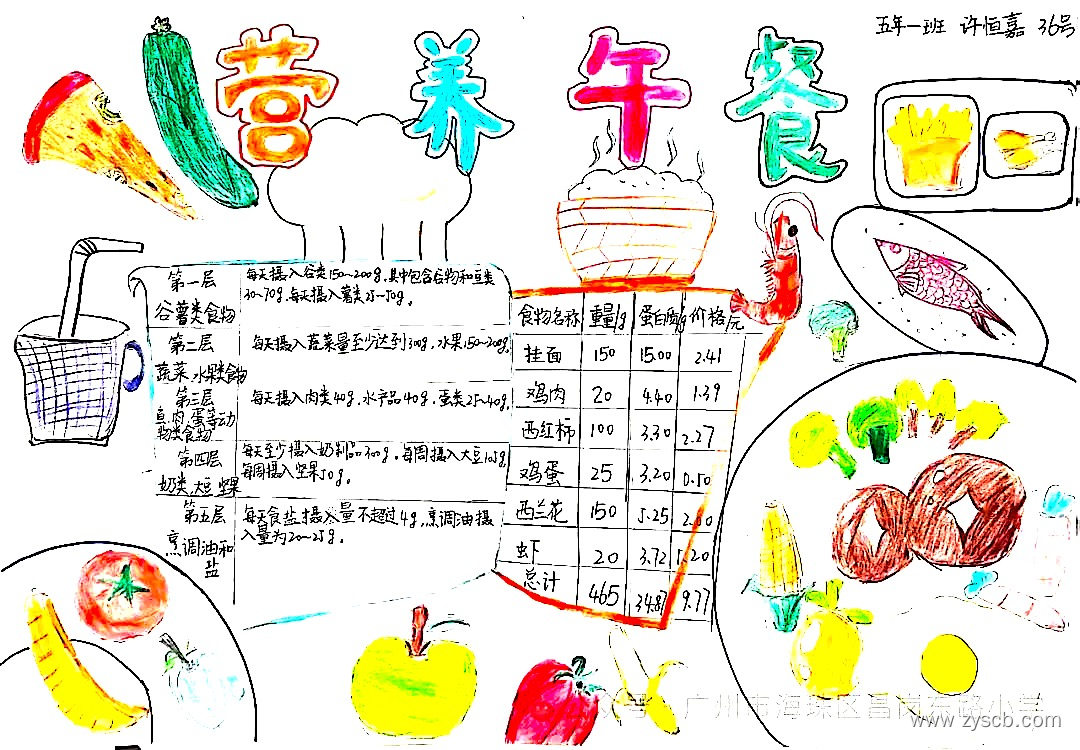 五年一班 许恒嘉 36号
营养午餐
第一层
谷薯类食物
每天摄入谷类150~200g,其中包含谷物和豆类
30~70g,每天摄入薯类25~50g。
第二层
蔬菜、水果类食物
每天摄入蔬菜量至少达到300g,水果150~200g。
第三层
鱼、肉、蛋等动
物类食物
每天摄入肉类40g,水产品40g,蛋类25~40g。
第四层
奶类、大豆、坚果
每天至少摄入奶制品300g,每周摄入大豆105g,
每周摄入坚果50g。
第五层
烹调油和
盐
每天食盐摄入量不超过4g,烹调油摄
入量为20~25g。
食物名称 重量/g 蛋白质/g 价格/元
挂面 150 15.00 2.41
鸡肉 20 4.40 1.39
西红柿 100 3.30 2.27
鸡蛋 25 3.20 0.50
西兰花 150 5.25 2.00
虾 20 3.72 1.20
总计 465 34.87 9.77
广州市海珠区昌岗东路小学
www.zyscb.com